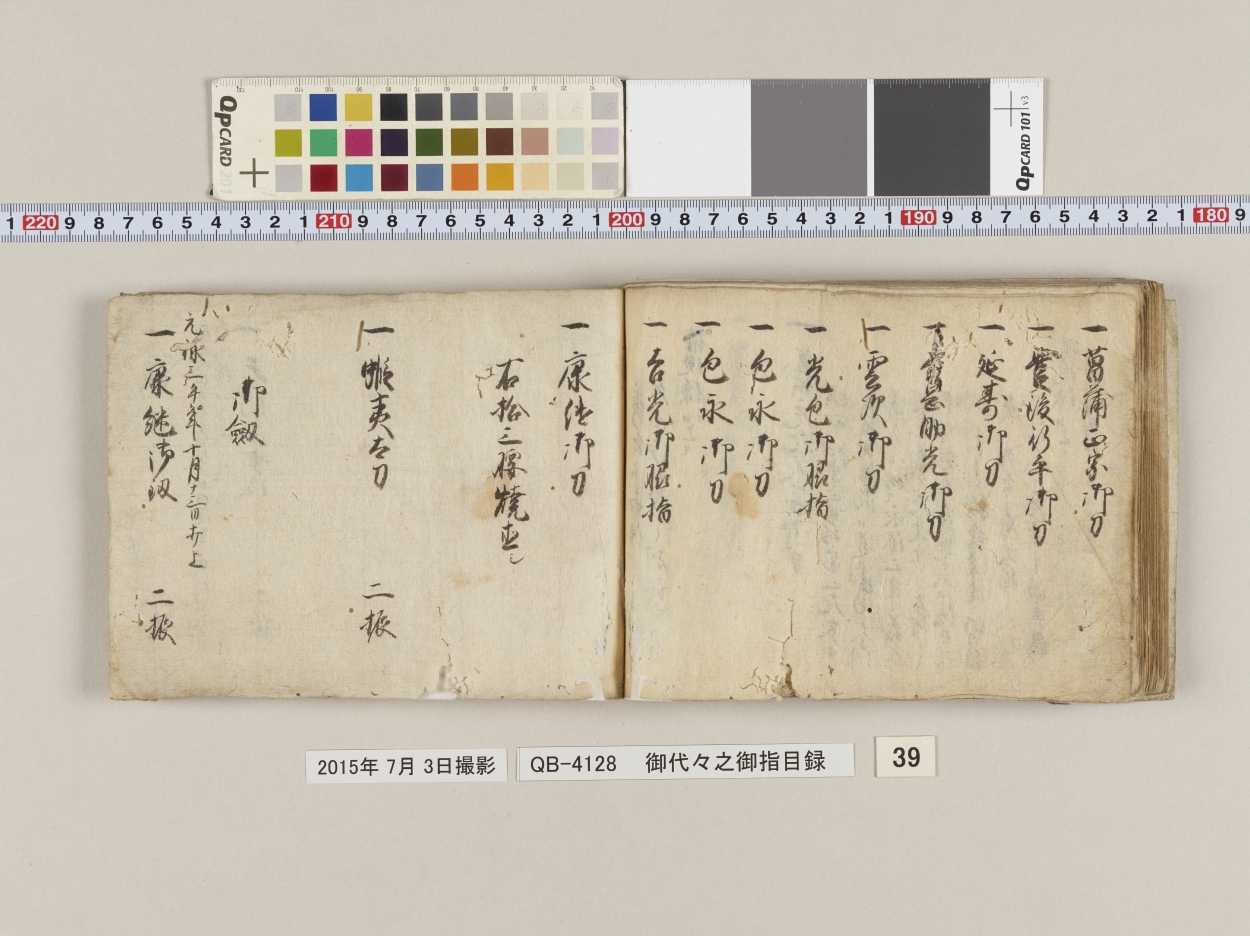 一 菖蒲正家御刀
一 豊後行平御刀
一 延壽御刀
一 助光御刀
一 雲次御刀
一 光包御脇指
一 包永御刀
一 包永御刀
一 吉光御脇指
一 康継御刀
右拾三腰焼直し
一 蝦夷太刀 二振
御劔
元禄三年十月十三日
一 康継御刀 二振
QPCARD 201
QPCARD 101 v3
1 220 9 8 7 6 5 4 3 2 1 210 9 8 7 6 5 4 3 2 1 200 9 8 7 6 5 4 3 2 1 190 9 8 7 6 5 4 3 2 1 180 9
2015年 7月 3日撮影
QB-4128 御代々之御指目録
39